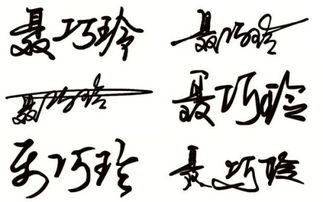 聂巧玲 聂巧玲
聂巧玲 聂巧玲
聂巧玲 聂巧玲